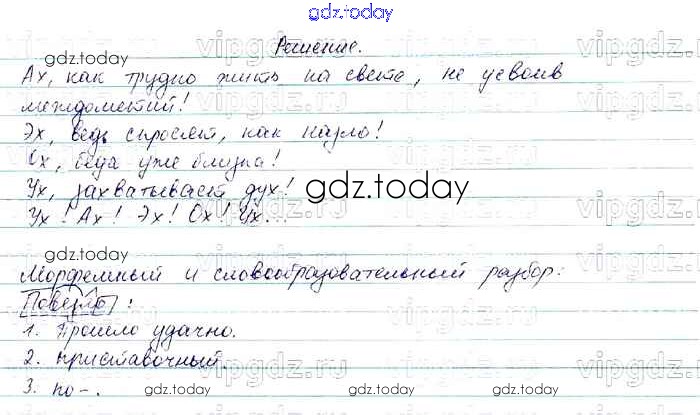 gdz.today
Решение.
gdz.today
Ах, как трудно жить на свете, не усвоив
междометий!
Эх, ведь спросят, как назло!
Ох, беда уже близка!
Ух, захватывает дух!
gdz.today
Ух! Ах! Эх! Ох! Их.
gdz.today
Морфемный и словообразовательный разбор:
Повезло:
1. Прошло удачно.
2. приставочный.
3. по-.
gdz.today
gdz.today
vipgdz.ru